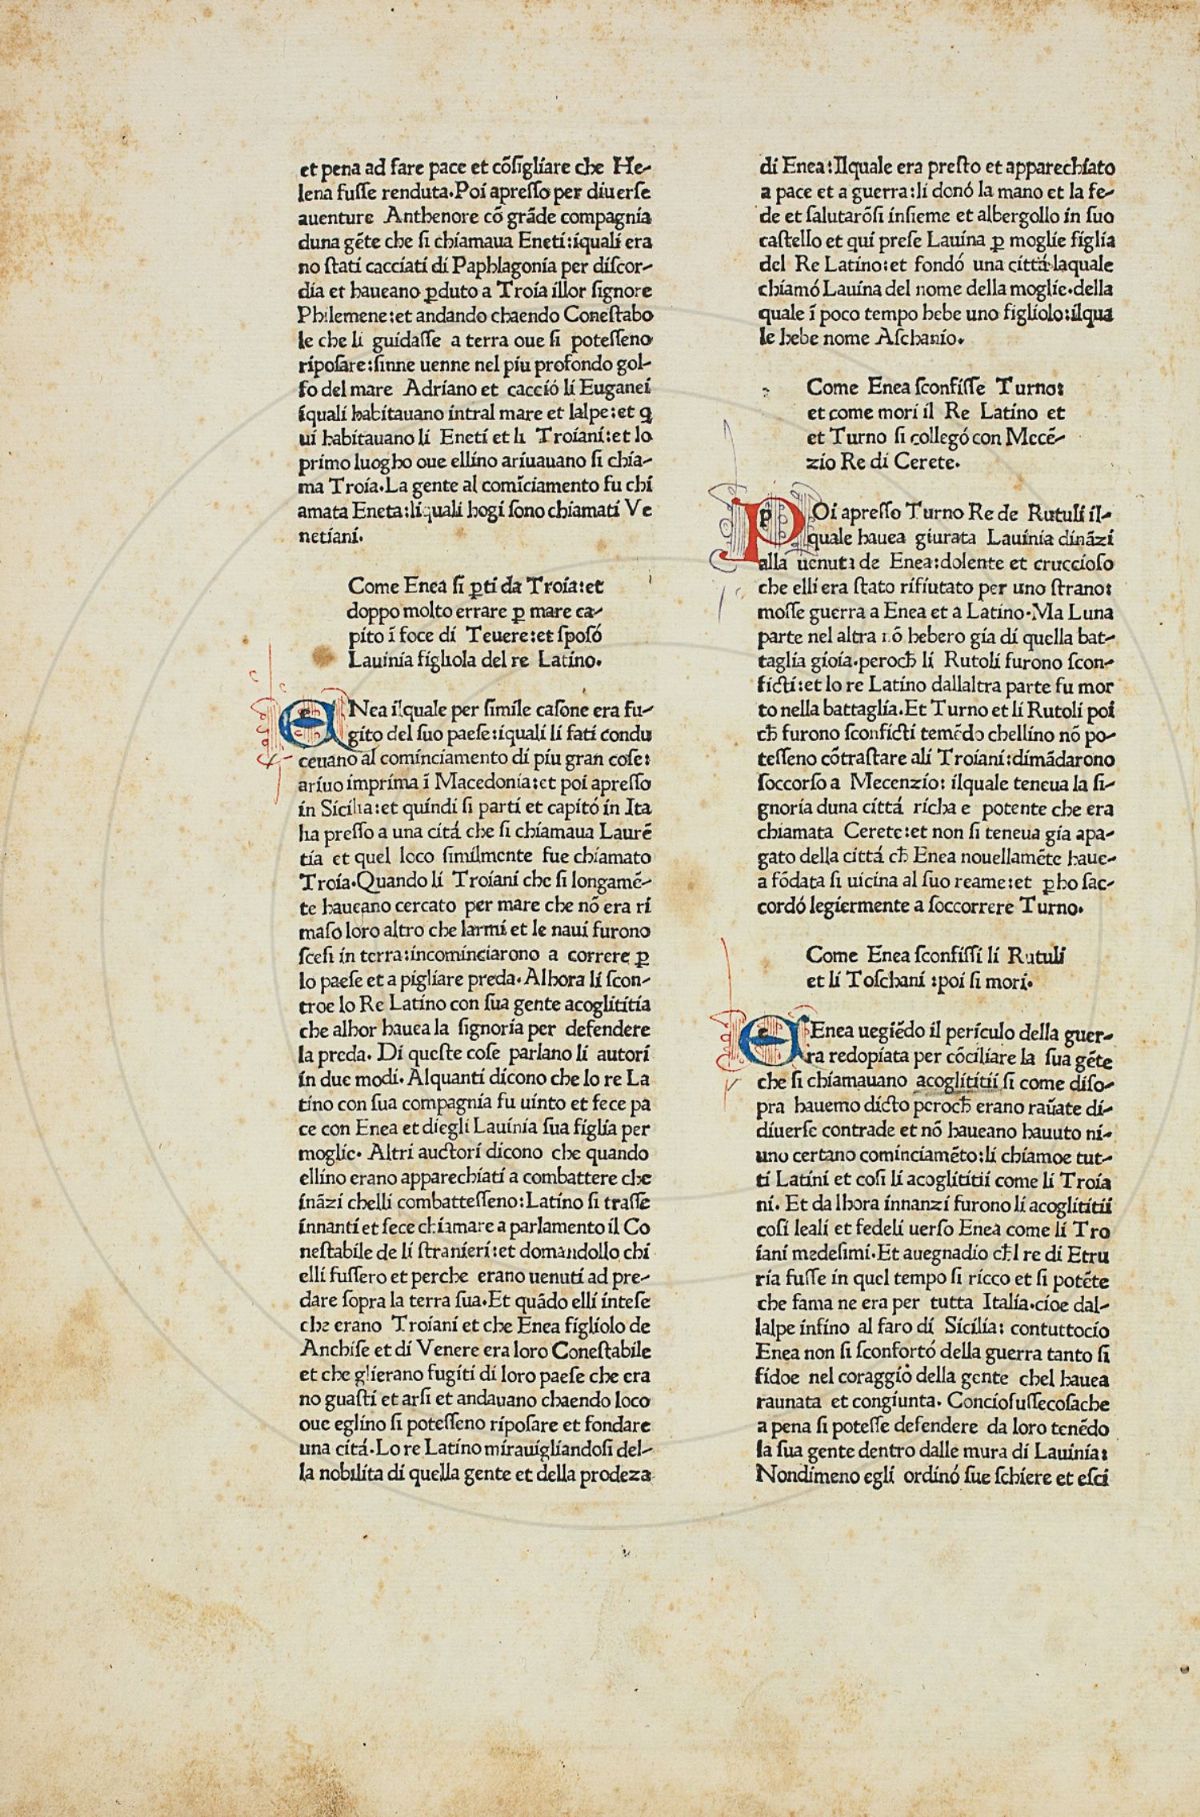 et pena ad fare pace et cōſigliare che He-
lena fuſſe renduta.Poi apreſſo per diuerſe
auenture Anthenore cō grāde compagnia
duna gēte che ſi chiamaua Eneti:iquali era
no ſtati cacciati di Paphlagonia per diſcor-
dia et haueano ꝑduto a Troia illor ſignore
Philemene:et andando chaendo Coneſtabo
le che li guidaſſe a terra oue ſi poteſſeno
ripoſare:ſinne uenne nel piu profondo gol-
fo del mare Adriano et cacció li Euganei
iquali habitauano intral mare et lalpe:et q
ui habitauano li Eneti et li Troiani:et lo
primo luogho oue ellino ariuauano ſi chia-
ma Troia.La gente al comīciamento fu chi
amata Eneta:liquali hogi ſono chiamati Ve
netiani.
Come Enea ſi ꝑti da Troia:et
doppo molto errare ꝑ mare ca-
pito ī foce di Teuere:et ſposó
Lauinia figliola del re Latino.
ENea ilquale per ſimile caſone era fu-
gito del ſuo paeſe:iquali li fati condu
ceuano al cominciamento di piu gran coſe:
ariuo imprima ī Macedonia:et poi apreſſo
in Sicilia:et quindi ſi parti et capitó in Ita
lia preſſo a una citá che ſi chiamaua Laurē
tia et quel loco ſimilmente fue chiamato
Troia.Quando li Troiani che ſi longamē-
te haueano cercato per mare che nō era ri
maſo loro altro che larmi et le naui furono
ſceſi in terra:incominciarono a correre ꝑ
lo paeſe et a pigliare preda.Alhora li ſcon-
troe lo Re Latino con ſua gente acoglititia
che alhor hauea la ſignoria per defendere
la preda. Di queſte coſe parlano li autori
in due modi.Alquanti dicono che lo re La
tino con ſua compagnia fu uinto et fece pa
ce con Enea et diegli Lauinia ſua figlia per
moglie. Altri auctori dicono che quando
ellino erano apparechiati a combattere che
ināzi chelli combatteſſeno:Latino ſi traſſe
innanti et fece chiamare a parlamento il Co
neſtabile de li ſtranieri:et domandollo chi
elli fuſſero et perche erano uenuti ad pre-
dare ſopra la terra ſua.Et quādo elli inteſe
che erano Troiani et che Enea figliolo de
Anchiſe et di Venere era loro Coneſtabile
et che glierano fugiti di loro paeſe che era
no guaſti et arſi et andauano chaendo loco
oue eglino ſi poteſſeno ripoſare et fondare
una citá.Lo re Latino mirauigliandoſi del-
la nobilita di quella gente et della prodeza
di Enea:Ilquale era preſto et apparechiato
a pace et a guerra:li donó la mano et la fe-
de et ſalutarōſi inſieme et albergollo in ſuo
caſtello et qui preſe Lauina ꝑ moglie figlia
del Re Latino:et fondó una cittá laquale
chiamó Lauina del nome della moglie.della
quale ī poco tempo hebe uno figliolo:ilqua
le hebe nome Aſchanio.
Come Enea ſconfiſſe Turno:
et come mori il Re Latino et
et Turno ſi collegó con Mecē-
zio Re di Cerete.
POi apreſſo Turno Re de Rutuli il-
quale hauea giurata Lauinia dināzi
alla uenuta de Enea:dolente et crucciolo
che elli era ſtato rifiutato per uno ſtrano:
moſſe guerra a Enea et a Latino.Ma Luna
parte nel altra nō hebero gia di quella bat-
taglia gioia.peroch̄ li Rutoli furono ſcon-
ficti:et lo re Latino dallaltra parte fu mor
to nella battaglia.Et Turno et li Rutoli poi
ch̄ furono ſconficti temēdo chellino nō po-
teſſeno cōtraſtare ali Troiani:dimādarono
ſoccorſo a Mecenzio: ilquale teneua la ſi-
gnoria duna cittá richa e potente che era
chiamata Cerete:et non ſi teneua gia apa-
gato della cittá ch̄ Enea nouellamēte haue-
a fōdata ſi uicina al ſuo reame:et ꝑho ſac-
cordó legiermente a ſoccorrere Turno.
Come Enea ſconfiſſi li Rutuli
et li Toſchani :poi ſi mori.
EEnea uegiēdo il periculo della guer-
ra redopiata per cōciliare la ſua gēte
che ſi chiamauano acoglititii ſi come diſo-
pra hauemo dicto peroch̄ erano raūate di-
diuerſe contrade et nō haueano hauuto ni-
uno certano cominciamēto:li chiamoe tut-
ti Latini et coſi li acoglititii come li Troia
ni. Et da lhora innanzi furono li acoglititii
coſi leali et fedeli uerſo Enea come li Tro
iani medeſimi.Et auegnadio ch̄l re di Etru
ria fuſſe in quel tempo ſi ricco et ſi potēte
che fama ne era per tutta Italia.cioe dal-
lalpe infino al faro di Sicilia: contuttocio
Enea non ſi ſconfortó della guerra tanto ſi
fidoe nel coraggio della gente chel hauea
raunata et congiunta. Concioſuſſecoſache
a pena ſi poteſſe defendere da loro tenēdo
la ſua gente dentro dalle mura di Lauinia:
Nondimeno egli ordinó ſue ſchiere et eſci